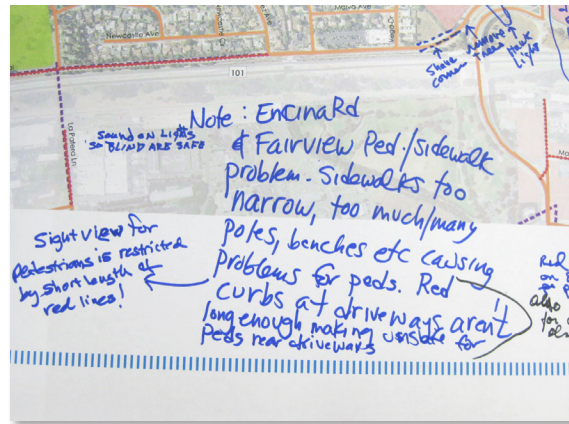 Newcastle Ave
Malva Ave
101
La Patera Ln
Shave
corner
remove
trees
light
Sound on Lights
so BLIND ARE SAFE
Note: Encina Rd
& Fairview Ped./sidewalk
problem. Sidewalks too
narrow, too much/many
poles, benches etc causing
problems for peds. Red
curbs at driveways aren't
long enough making unsafe for
Peds near driveways
Sight view for
pedestrians is restricted
by short length of
red lines!
Red
on
for
also
for